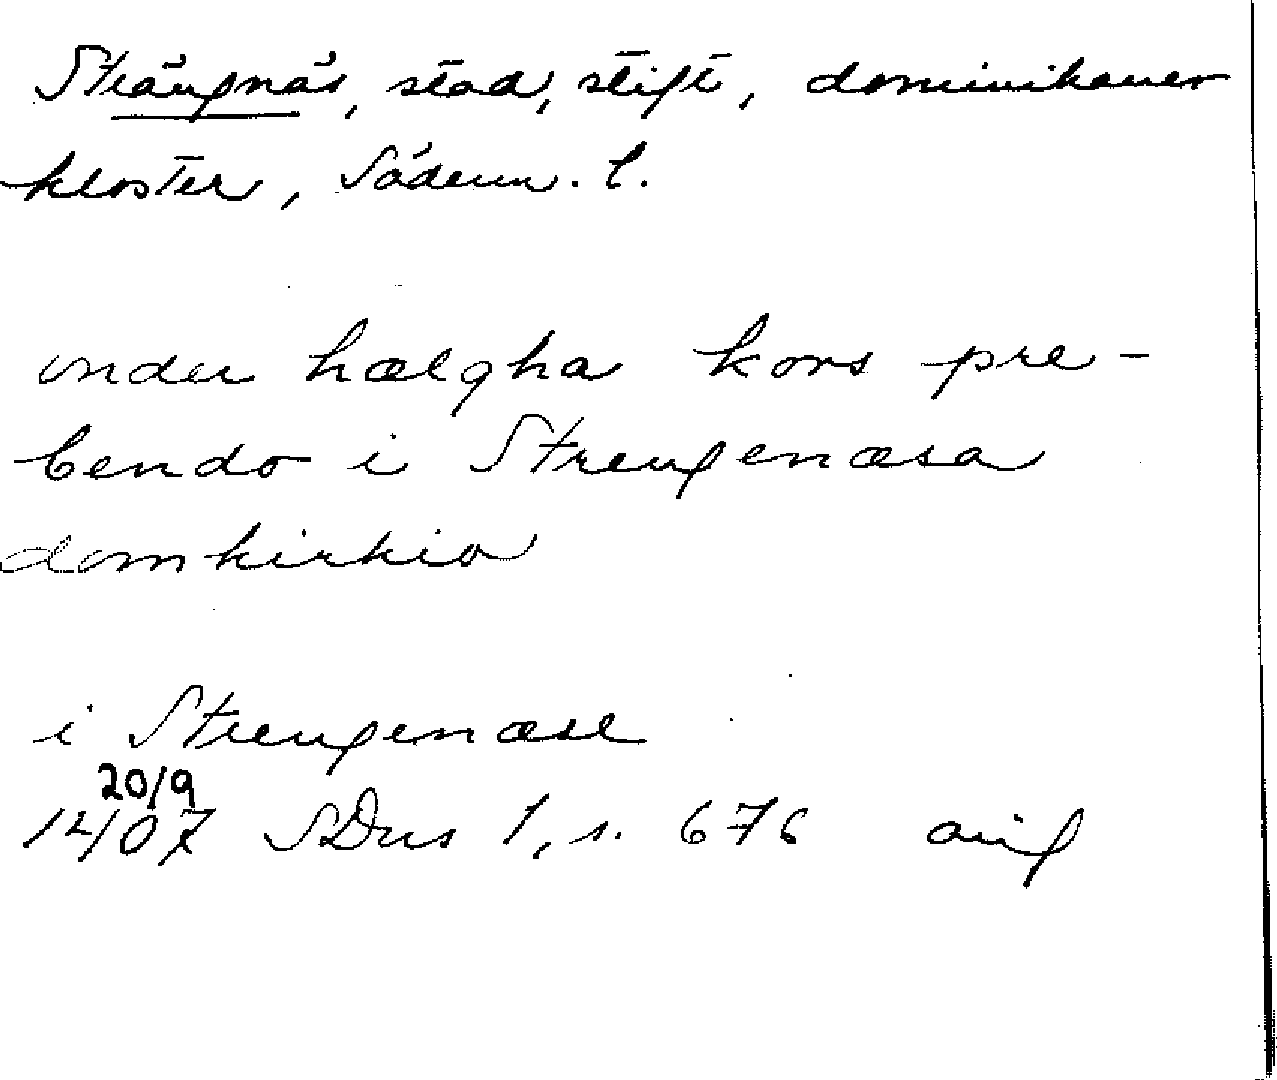 Strängnäs, stad, stift, dominikaner
kloster, Söderm. l.
vnder hælgha kors pre-
bendo i Strengenæsa
domkirkio
i Strengenæse
20/9
1407 SDns 1, s. 676 orig